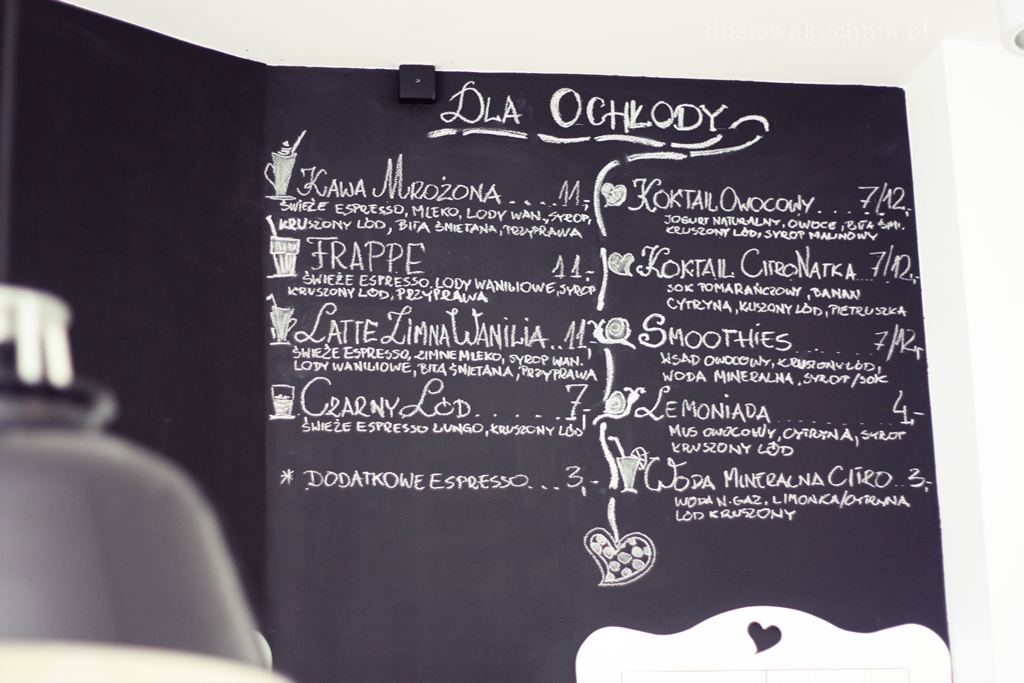 dusiowakuchnia.pl
DLA OCHŁODY
KAWA MROŻONA.....11,-
ŚWIEŻE ESPRESSO, MLEKO, LODY WAN., SYROP,
KRUSZONY LÓD, BITA ŚMIETANA, PRZYPRAWA
FRAPPE 11.-
ŚWIEŻE ESPRESSO, LODY WANILIOWE, SYROP
KRUSZONY LÓD, PRZYPRAWA
LATTE ZIMNA WANILIA..11,-
ŚWIEŻE ESPRESSO, ZIMNE MLEKO, SYROP WAN.
LODY WANILIOWE, BITA ŚMIETANA, PRZYPRAWA
CZARNY LÓD.......7,-
ŚWIEŻE ESPRESSO LUNGO, KRUSZONY LÓD
* DODATKOWE ESPRESSO...3,-
KOKTAIL OWOCOWY.....7/12,-
JOGURT NATURALNY, OWOCE, BITA ŚMI.
KRUSZONY LÓD, SYROP MALINOWY
KOKTAIL CITRONATKA..7/12,-
SOK POMARAŃCZOWY, BANAN
CYTRYNA, KUSZONY LÓD, PIETRUSZKA
SMOOTHIES.......7/12,-
WSAD OWOCOWY, KRUSZONY LÓD,
WODA MINERALNA, SYROP/SOK
LEMONIADA.......4,-
MUS OWOCOWY, CYTRYNA, SYROP
KRUSZONY LÓD
WODA MINERALNA CITRO..3,-
WODA N. GAZ, LIMONKA/CYTRYNA
LÓD KRUSZONY